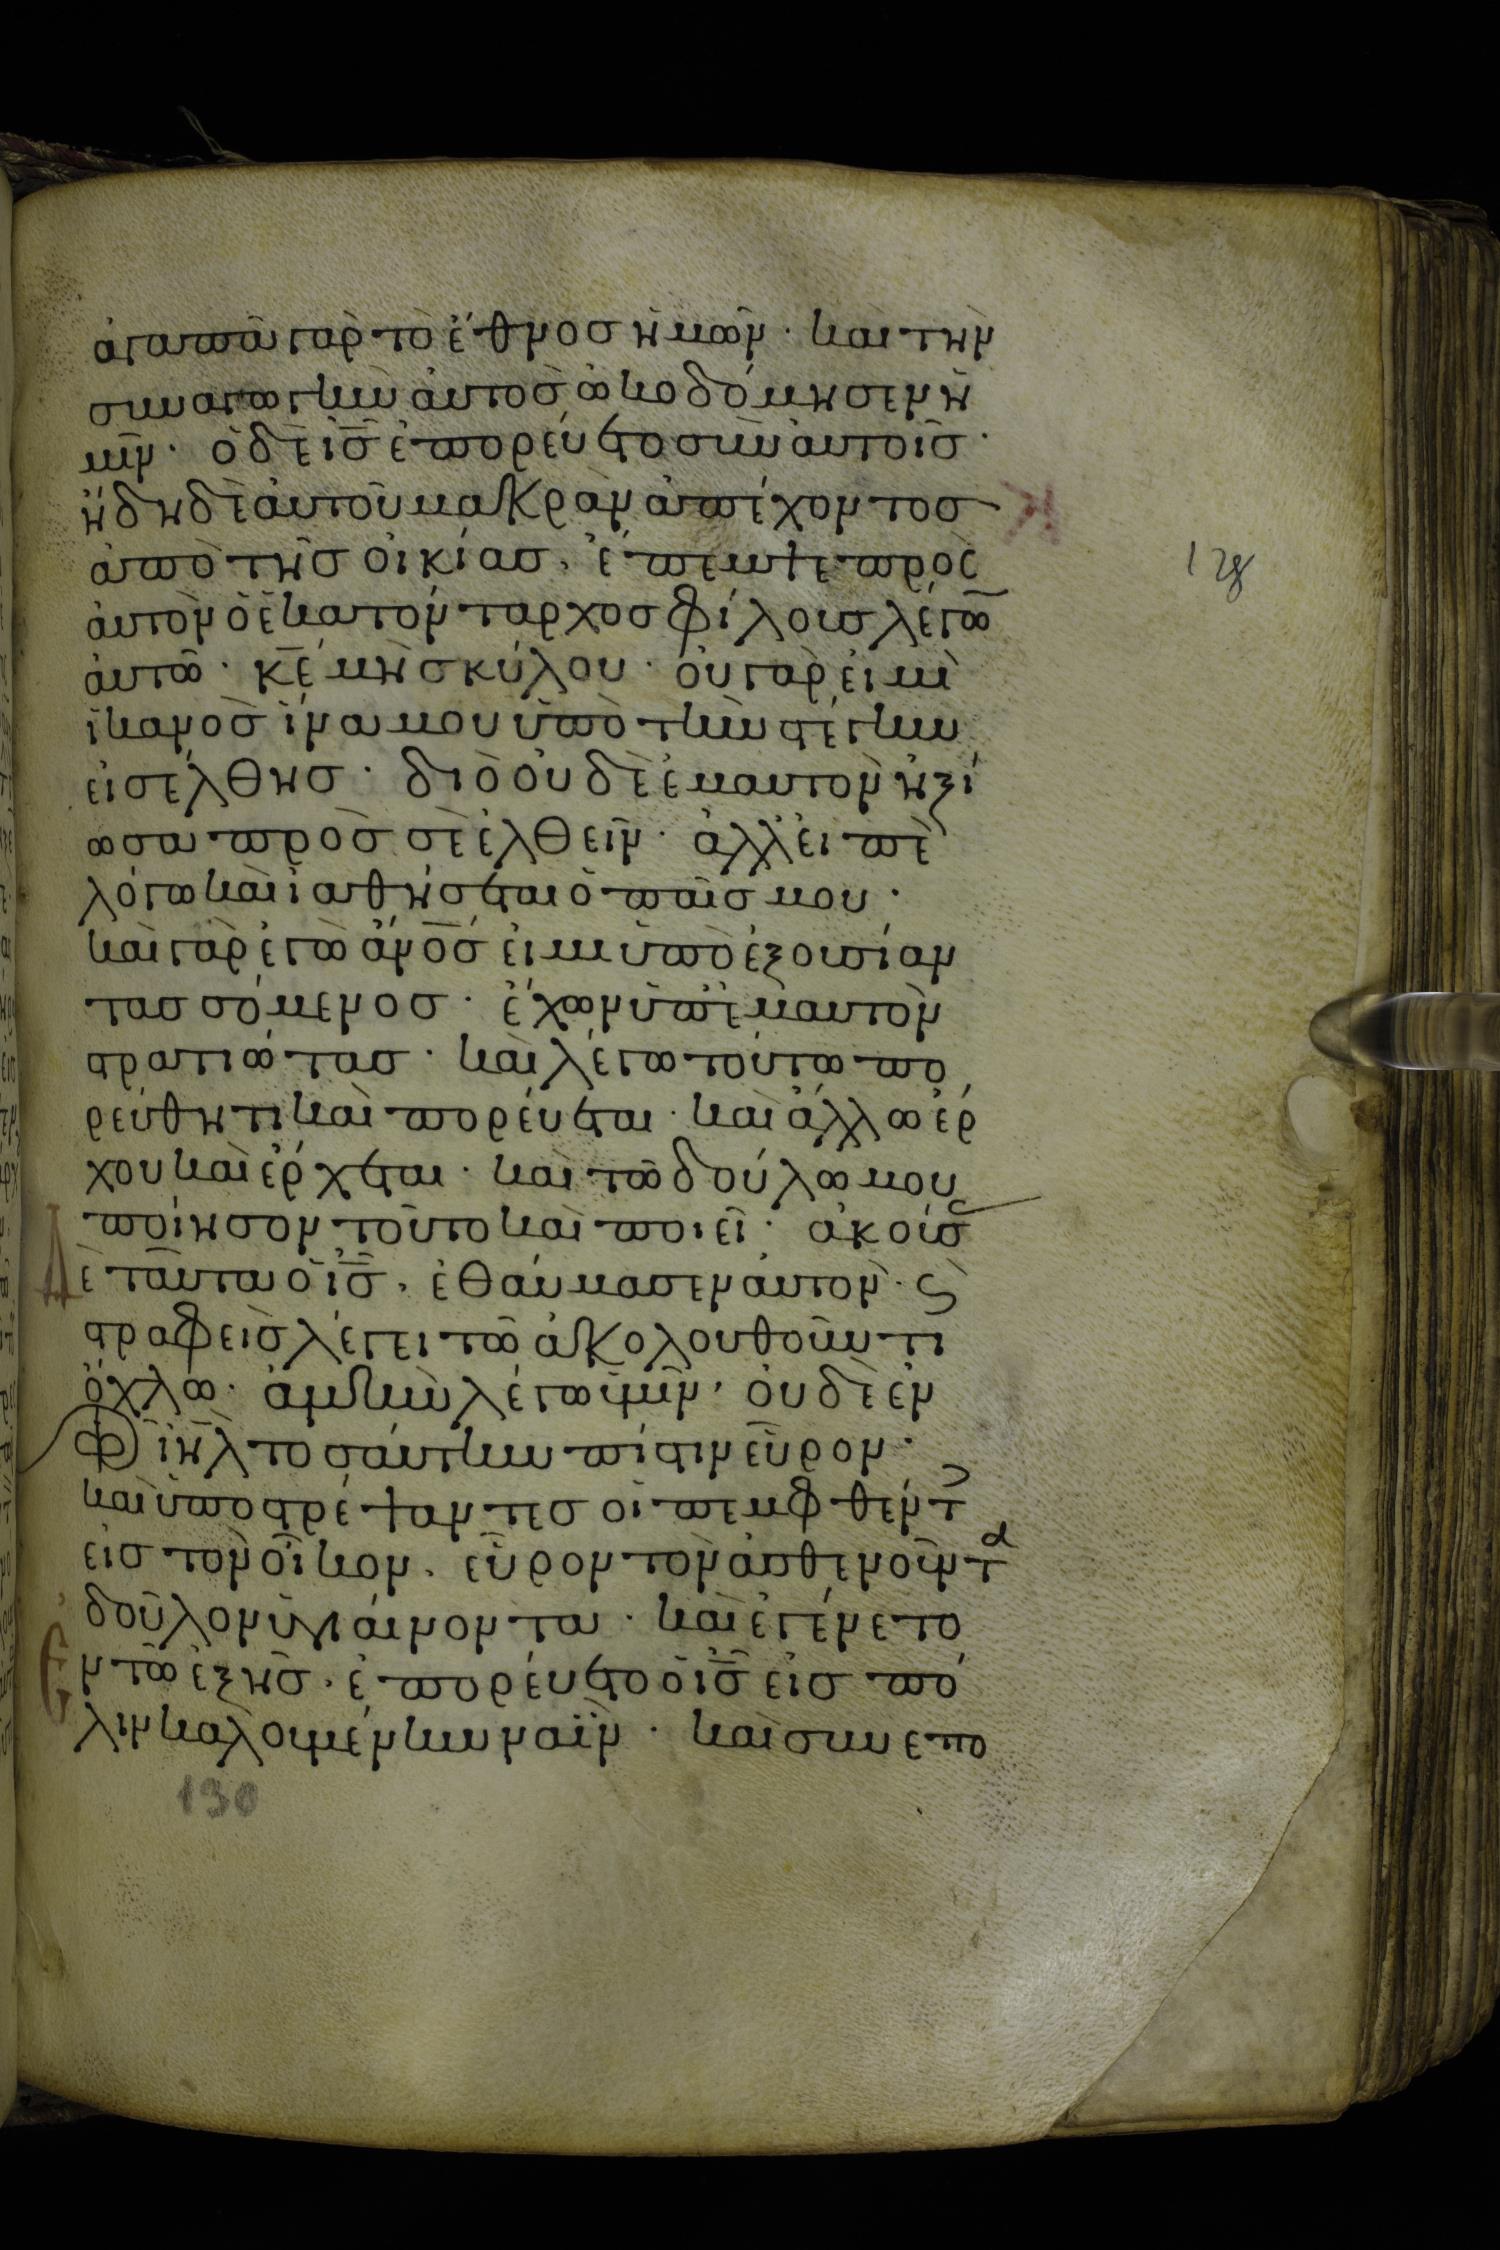 ἀγαπᾶ γὰρ τὸ ἔθνος ἡμῶν · καὶ τὴν
συναγωγὴν αὐτὸς ὠκοδόμησεν ἡ
μῖν · ὁ δὲ ι̅ς̅ ἐπορεύετο σὺν αὐτοῖς ·
ἤδη δὲ αὐτοῦ μακρὰν ἀπέχοντος
ἀπὸ τῆς οἰκίας, ἔπεμψε πρὸς
αὐτὸν ὁ ἑκατόνταρχος φίλους λέγω̅
αὐτῶ · κ̅ε̅ μὴ σκύλου · οὐ γάρ εἰμὶ
ἱκανὸς ἵνα μου ὑπὸ τὴν στέγην
εἰσέλθης · διὸ οὐδὲ ἐμαυτὸν ἠξί
ωσα πρὸς σὲ ἐλθεῖν · ἀλλ' εἰπὲ
λόγω καὶ ἰαθήσεται ὁ παῖς μου ·
καὶ γὰρ ἐγὼ ἄν̅ο̅ς̅ εἰμι ὑπὸ ἐξουσίαν
τασσόμενος · ἔχων ὑπ' ἐμαυτὸν
στρατιώτας · καὶ λέγω τούτω πο
ρεύθητι καὶ πορεύεται · καὶ ἄλλω ἔρ
χου καὶ ἔρχεται · καὶ τῶ δούλω μου
ποίησον τοῦτο καὶ ποιεῖ · ἀκούσ
Δὲ ταῦτα ὁ ι̅ς̅, ἐθαύμασεν αὐτὸν · ϛ
στραφεὶς λέγει τῶ ἀκολουθοῦντι
ὄχλω · ἀμὴν λέγω ὑμῖν, οὐδὲ ἐν
τῶ ι̅η̅λ̅ τοσαύτην πίστιν εὗρον ·
καὶ ὑποστρέψαντες οἱ πεμφθέντ
εἰς τὸν οἶκον, εὗρον τὸν ἀσθενοῦντα
δοῦλον ὑγιαίνοντα · καὶ ἐγένετο
Ἐν τῶ ἑξῆς, ἐπορεύετο ὁ ι̅ς̅ εἰς πό
λιν καλουμένην ναΐν · καὶ συνεπο
130